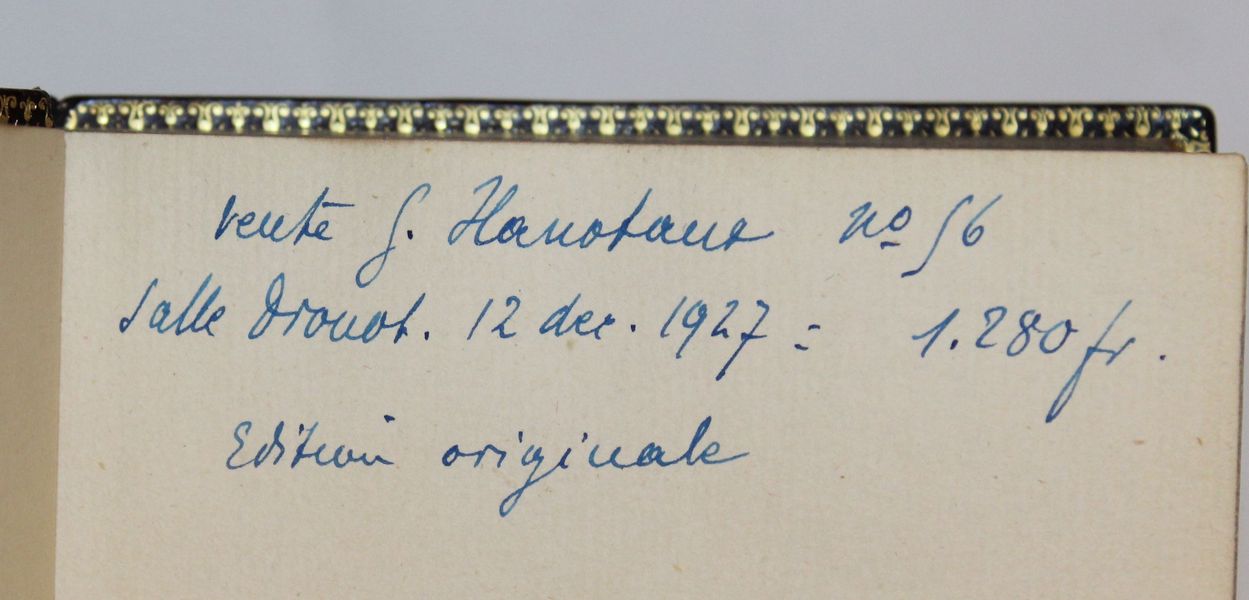 vente G. Hanotaux no 56
Salle Drouot. 12 dec. 1927 = 1.280 fr.
Edition originale